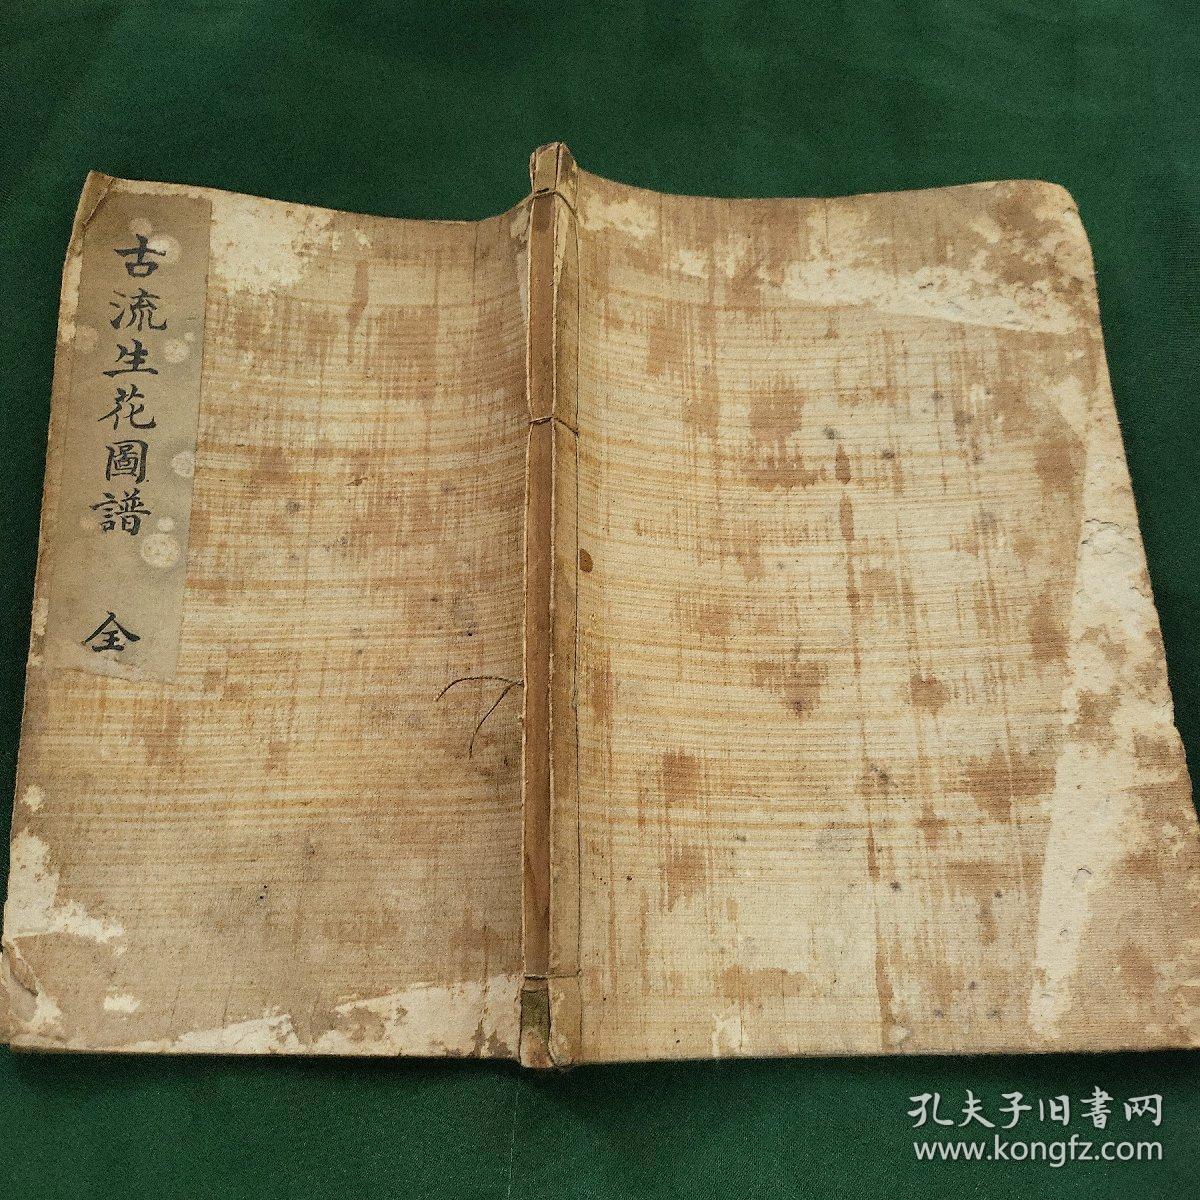 古流生花圖譜 全
孔夫子旧書网
www.kongfz.com